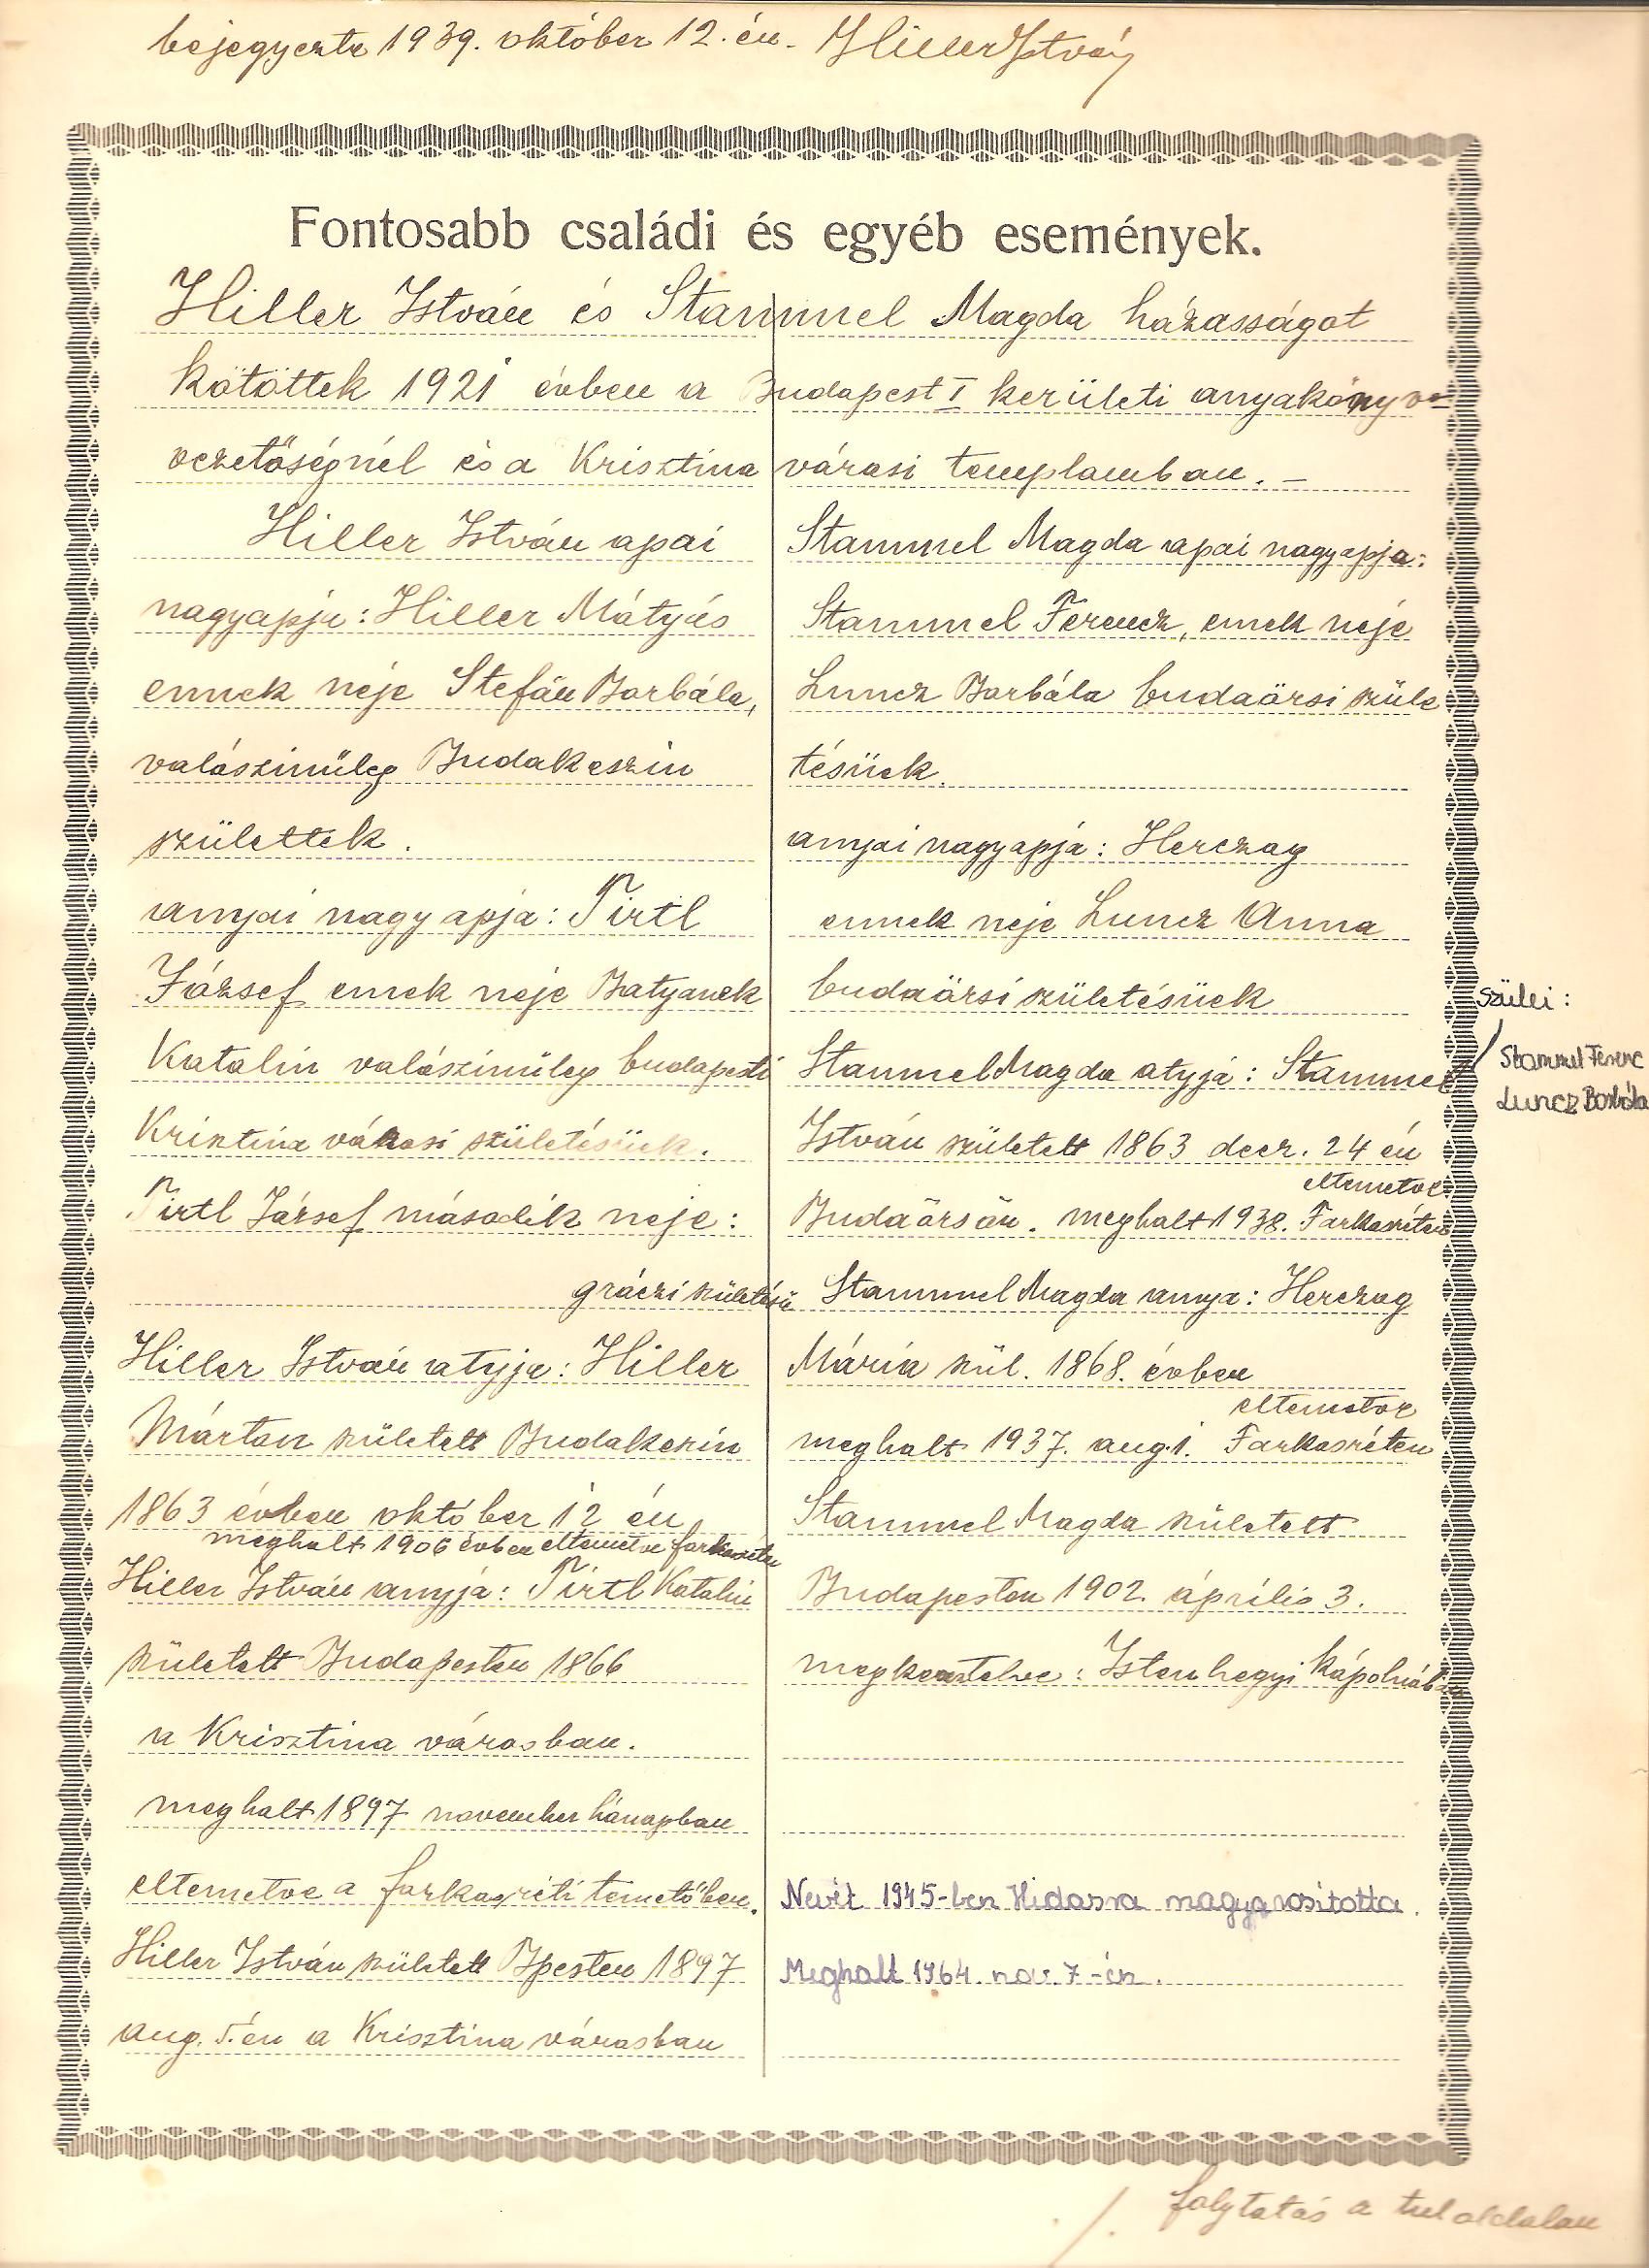 bejegyezte 1939. október 12.-én. Hiller István
Fontosabb családi és egyéb események.
Hiller István és Stammel Magda házasságot
kötöttek 1921 évben a Budapest I kerületi anyakönyv-
vezetőségnél és a Krisztina városi templomban. –
Hiller István apai
nagyapja: Hiller Mátyás
ennek neje Stefán Borbála,
valószinűleg Budakeszin
születtek.
anyai nagyapja: Tirtl
József ennek neje Batyanek
Katalin valószinűleg budapesti
Krisztina városi születésüek.
Tirtl József második neje:
gráczi születésü
Hiller István atyja: Hiller
Márton született Budakeszin
1863 évben október 12 én
meghalt 1906 évben eltemetve farkasréten
Hiller István anyja: Tirtl Katalin
született Budapesten 1866
a Krisztina városban.
meghalt 1897 november hónapban
eltemetve a farkasréti temetőben.
Hiller István született Bpesten 1897
aug. 5.én a Krisztina városban
Stammel Magda apai nagyapja:
Stammel Ferencz, ennek neje
Luncz Borbála budaörsi szüle
tésüek.
anyai nagyapja: Herczog
ennek neje Luncz Anna
budaörsi születésüek
Stammel Magda atyja: Stammel
István született 1863 decz. 24 én
eltemetve
Budaörsön. meghalt 1938. Farkasréten
Stammel Magda anyja: Herczog
Mária szül. 1868. évben
eltemetve
meghalt 1937. aug. 1. Farkasréten
Stammel Magda született
Budapesten 1902. április 3.
megkeresztelve: Istenhegyi kápolnában
Nevét 1945-ben Hidasra magyarosította.
Meghalt 1964. nov. 7-én.
szülei:
Stammel Ferenc
Luncz Borbála
./. folytatás a tuloldalon